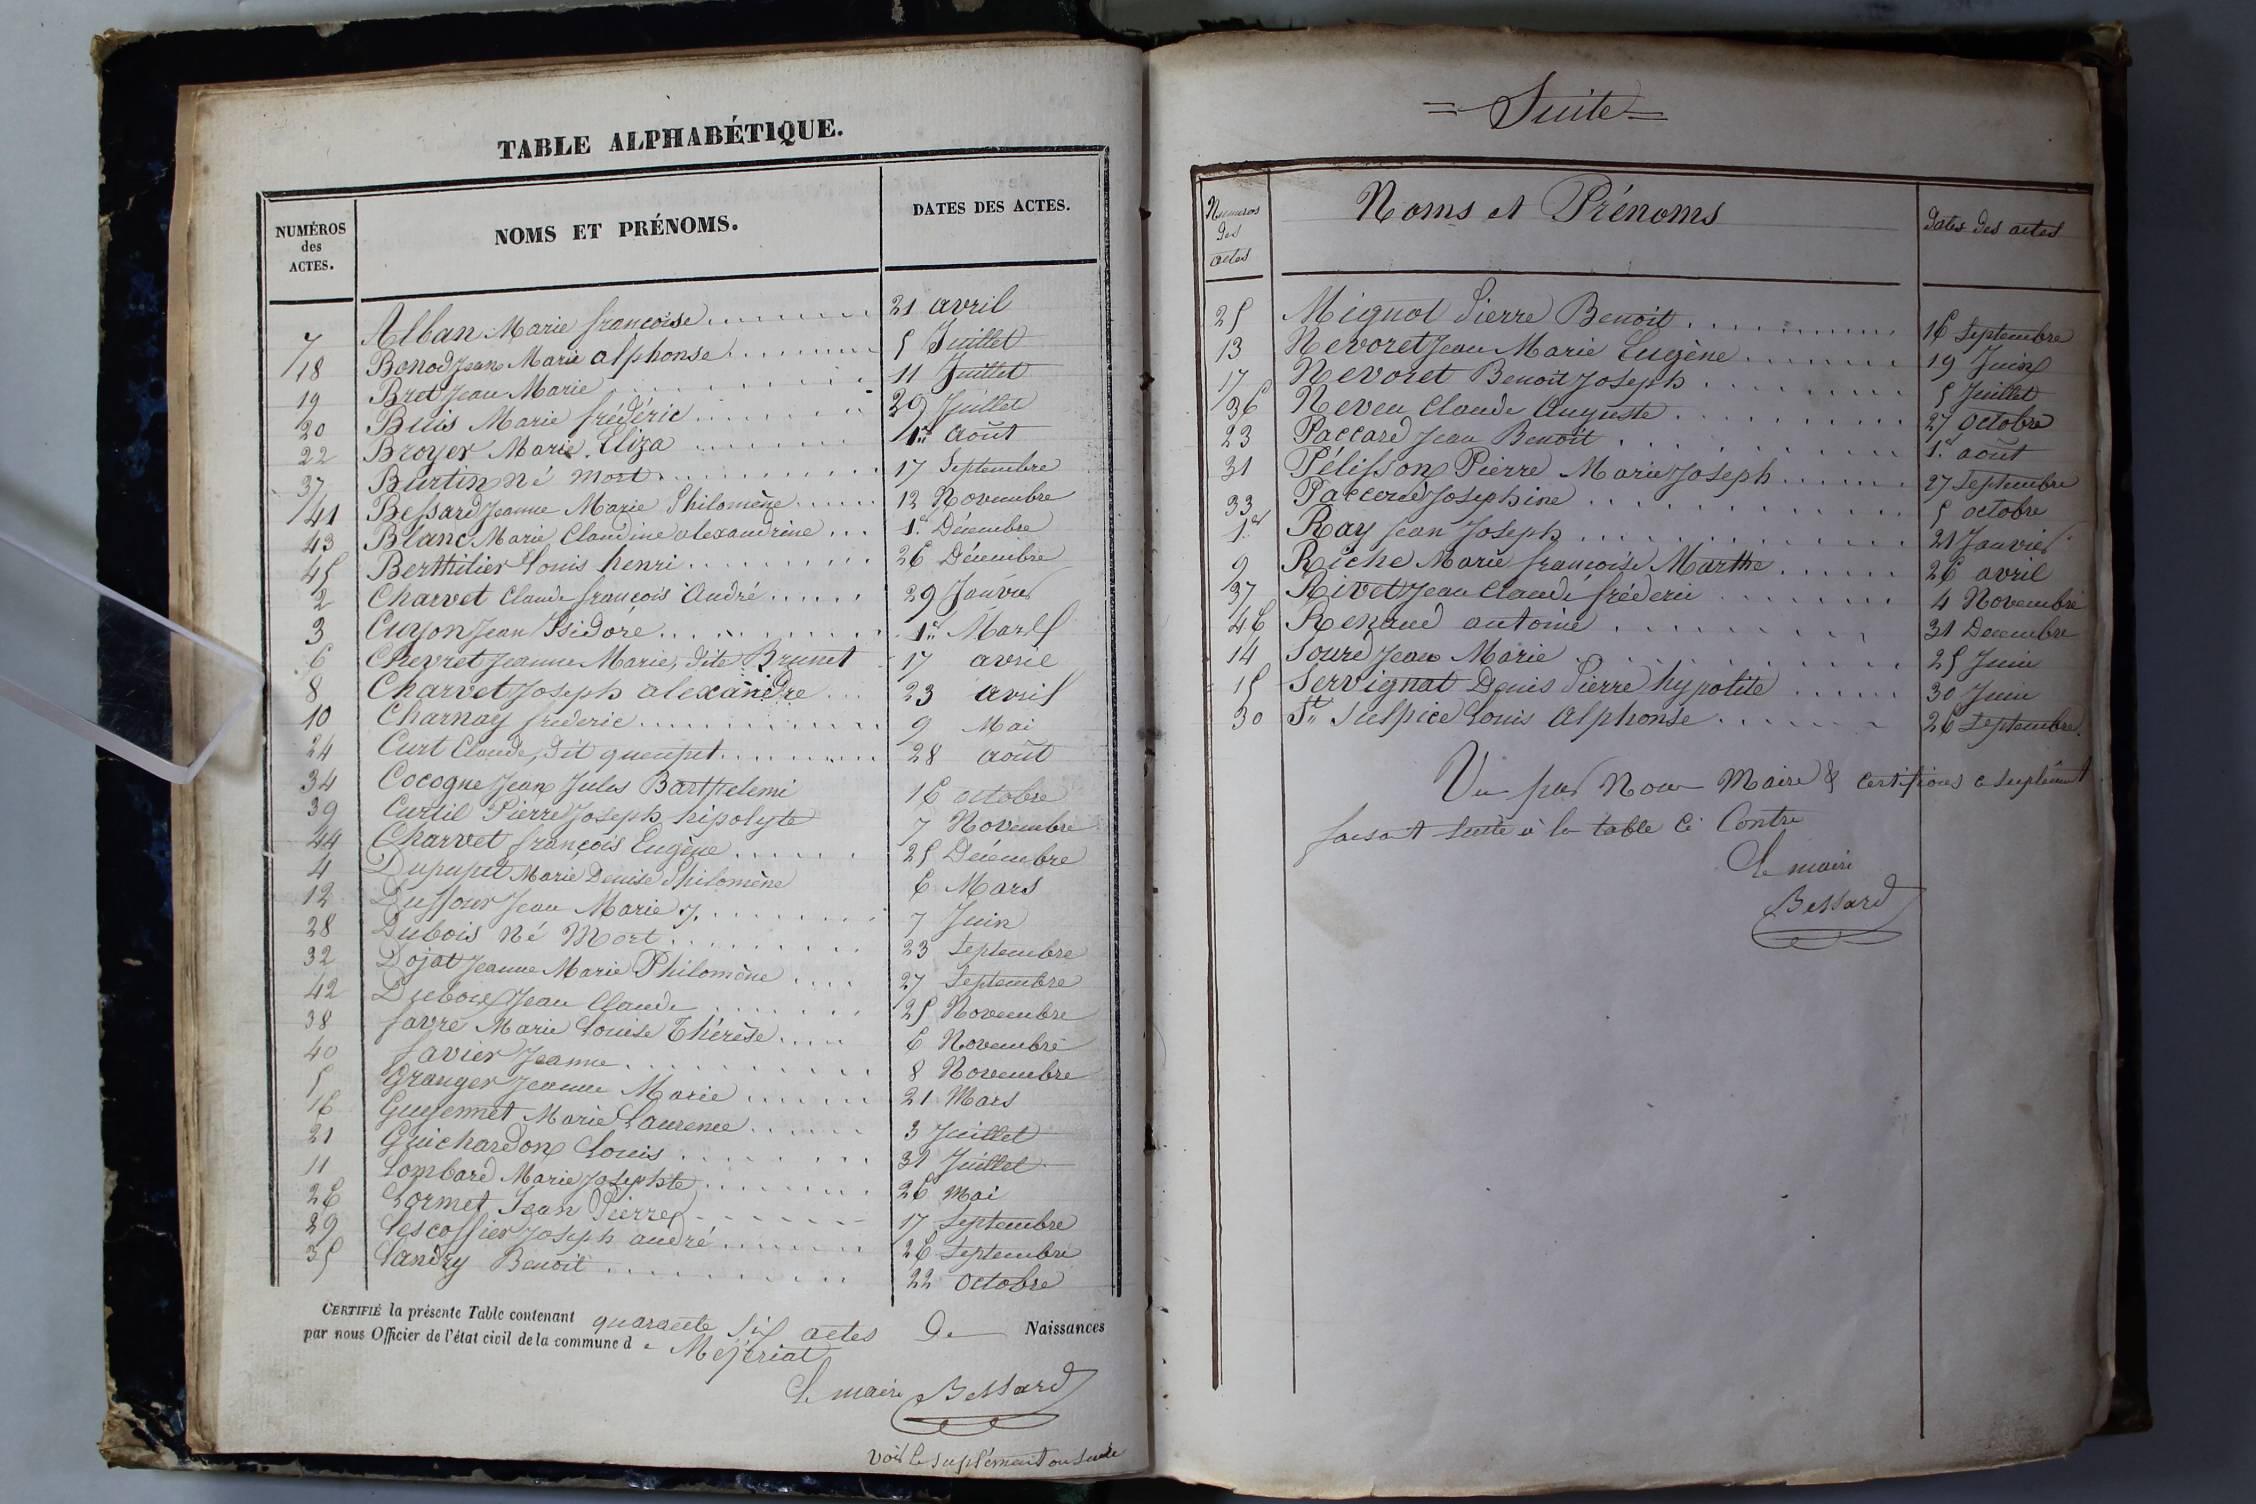 TABLE ALPHABÉTIQUE.
NUMÉROS des ACTES. NOMS ET PRÉNOMS. DATES DES ACTES.
7 Alban Marie françoise 21 avril
18 Bonod Jean Marie alphonse 5 Juillet
19 Bret Jean Marie 11 Juillet
20 Buis Marie frédéric 29 Juillet
22 Broyer Marie Eliza 1er août
37 Burtin Né Mort 17 Septembre
41 Bessard Jeanne Marie Philomène 12 Novembre
43 Blanc Marie Claudine alexandrine 1er Décembre
45 Berthilier Louis henri 26 Décembre
2 Charvet Claude françois André 29 Janvier
3 Cuyon Jean Isidore 1er Mars
6 Chevret Jeanne Marie, dite Brunet 17 avril
8 Charvet Joseph alexandre 23 avril
10 Charnay frederic 9 Mai
24 Curt Claude, dit queupet 28 août
34 Cocogne Jean Jules Barthelemi 16 octobre
39 Curtil Pierre Joseph hipolyte 7 Novembre
44 Charvet françois Eugène 25 Décembre
4 Dupupet Marie Denise Philomène 6 Mars
12 Duffour Jean Marie J. 7 Juin
28 Dubois Né Mort 23 Septembre
32 Dojat Jeanne Marie Philomène 27 Septembre
42 Dubois Jean Claude 25 Novembre
38 favre Marie Louise Thérèse 6 Novembre
40 favier Jeanne 8 Novembre
5 Granger Jeanne Marie 21 Mars
16 Guyennet Marie Laurence 3 Juillet
21 Guichardon Louis 31 Juillet
11 Lombard Marie Josephte 26 Mai
26 Lormet Jean Pierre 17 Septembre
29 Lescoffier Joseph andré 26 Septembre
35 Landry Benoit 22 octobre
CERTIFIÉ la présente Table contenant quarante six actes De Naissances
par nous Officier de l'état civil de la commune d e Mézériat
Le maire Bessard
voir le suplément ou suite
= Suite =
Numeros des actes Noms et Prénoms Dates des actes
25 Mignot Pierre Benoit 16 Septembre
13 Nevoret Jean Marie Eugène 19 Juin
17 Nevoret Benoit Joseph 5 Juillet
36 Neveu Claude Auguste 27 octobre
23 Paccard Jean Benoit 1er août
31 Pélisson Pierre Marie Joseph 27 Septembre
33 Paccoud Josephine 5 octobre
1er Ray Jean Joseph 21 Janvier
9 Riche Marie françoise Marthe 26 avril
37 Rivet Jean Claude fréderic 4 Novembre
46 Renaud antoine 31 Decembre
14 Sourd Jean Marie 25 Juin
15 Servignat Denis Pierre hypolite 30 Juin
30 St Sulspice Louis Alphonse 26 Septembre
Vu par Nous Maire & certifions ce suplément
faisant Suite à la table Ci Contre
Le maire
Bessard